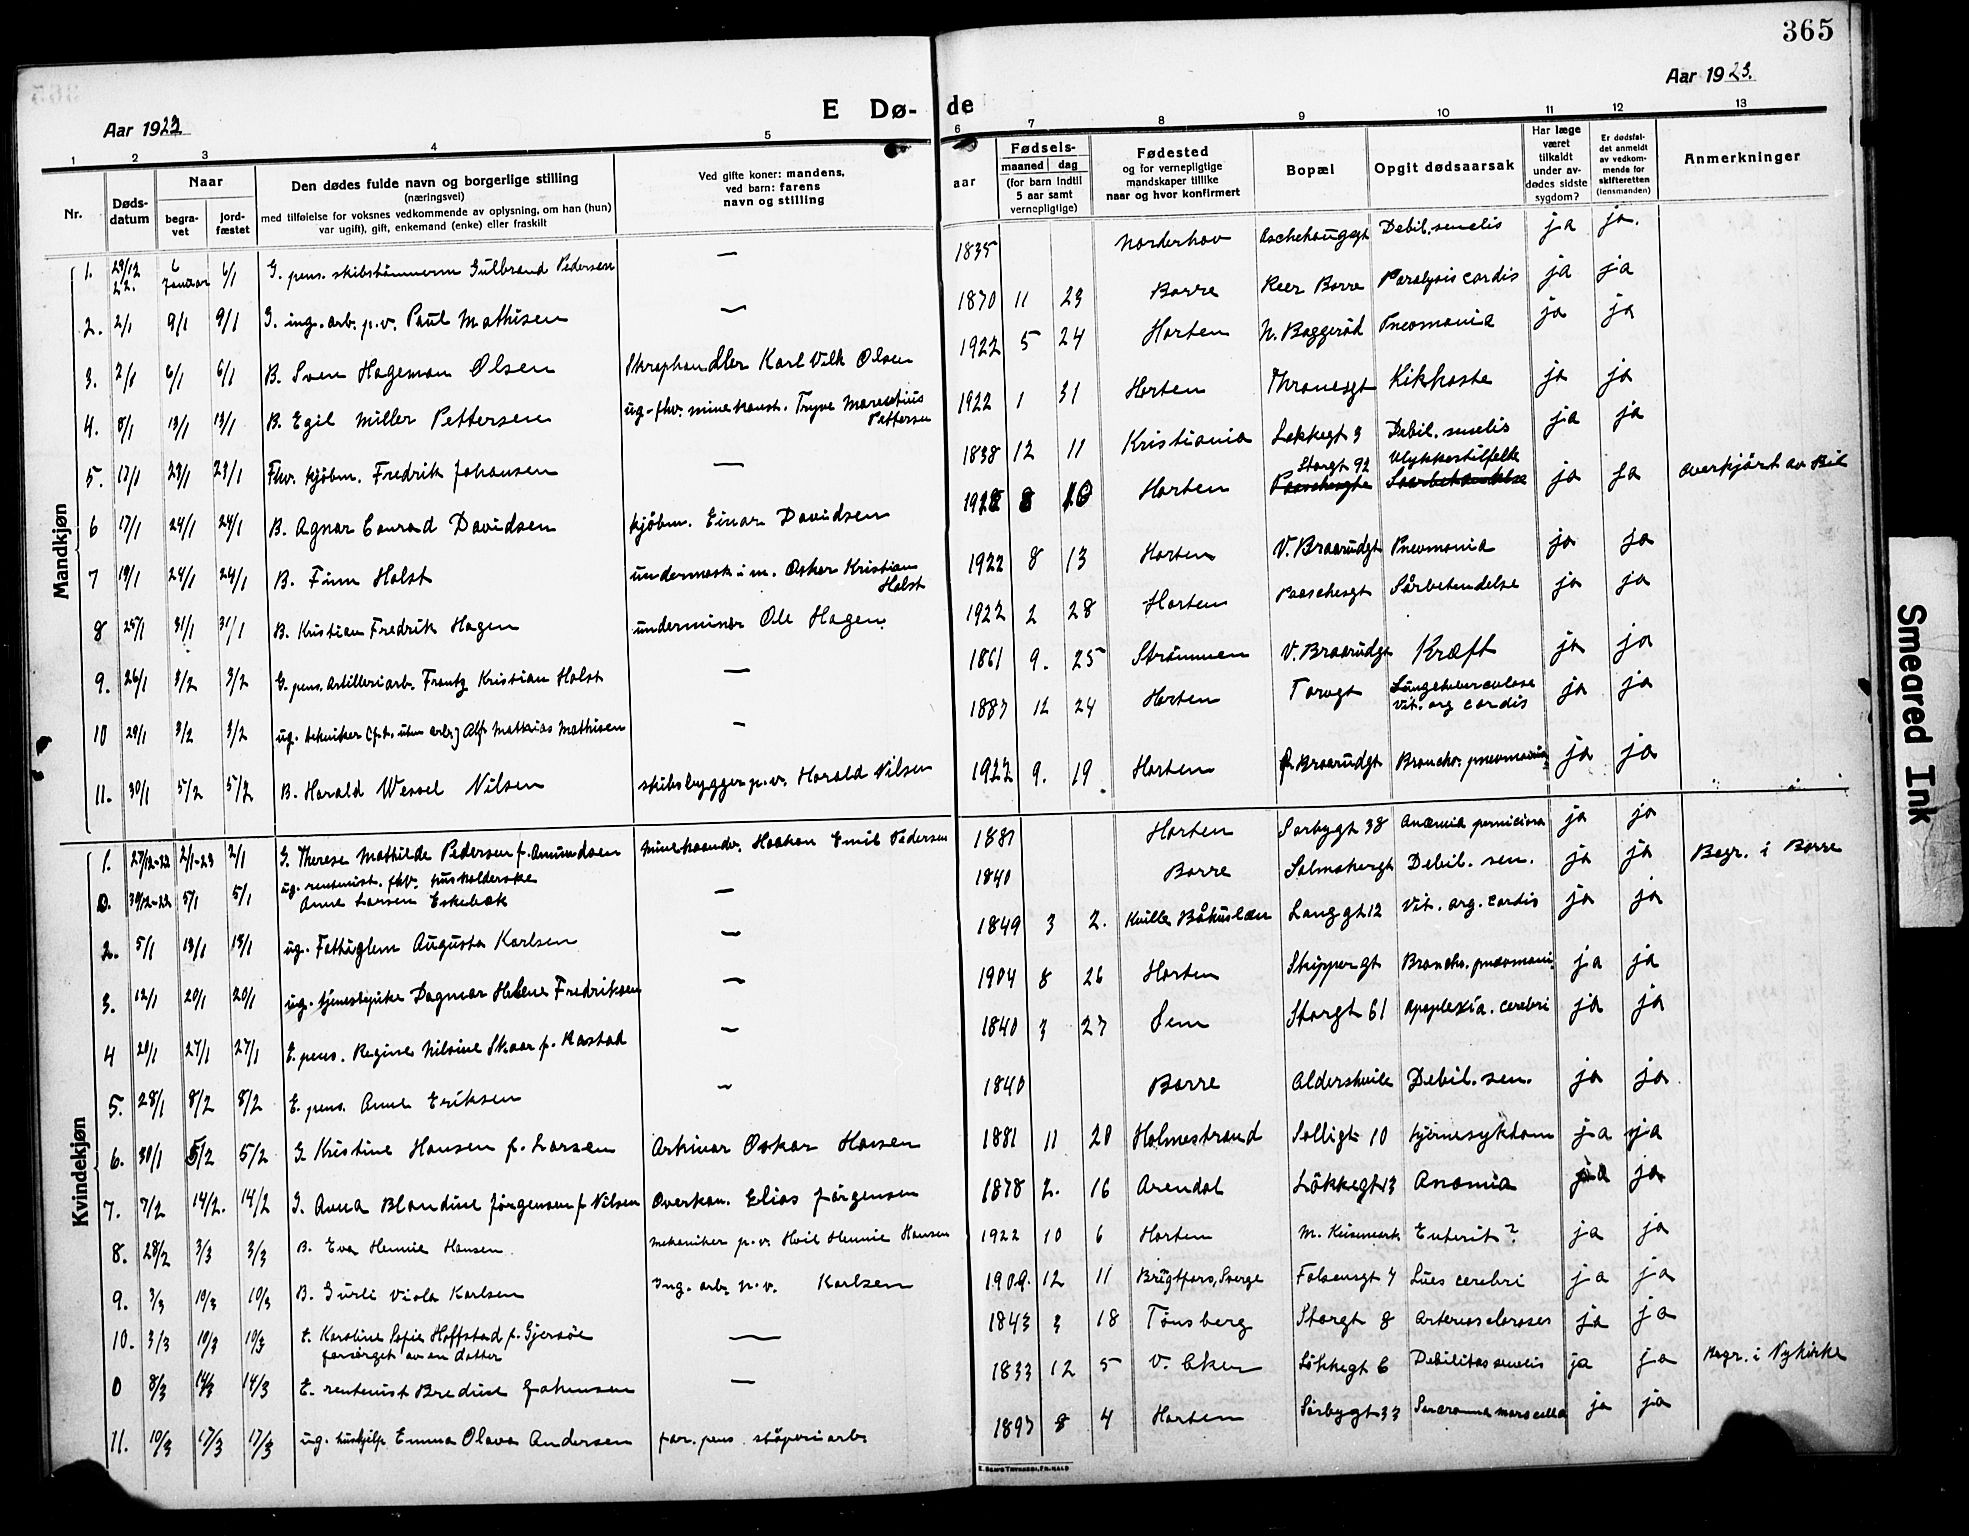 365
Aar 1923.
E Dø- de
Aar 1923
1 2 3 4 5 6 7 8 9 10 11 12 13
Nr.
Dødsdatum
Naar
begravet
jordfæstet
Den dødes fulde navn og borgerlige stilling
(næringsvei)
med tilføielse for voksnes vedkommende av oplysning, om han (hun)
var ugift), gift, enkemand (enke) eller fraskilt
Ved gifte koner: mandens,
ved barn: farens
navn og stilling
aar
Fødsels-
maaned dag
(for barn indtil
5 aar samt
vernepligtige)
Fødested
og for vernepligtige
mandskaper tillike
naar og hvor konfirmert
Bopæl
Opgit dødsaarsak
Har læge
været
tilkaldt
under av-
dødes sidste
sygdom?
Er dødsfal-
det anmeldt
av vedkom-
mende for
skifteretten
(lensmanden)
Anmerkninger
Mandkjøn
1. 29/12 22. 6 januar 6/1 G. pens. skibstømmerm Gulbrand Pedersen — 1835 Norderhov Aschehougsgt Debil. senelis ja ja.
2. 2/1 9/1 9/1 G. ing. arb. p.v. Paul Mathisen — 1870 11 23 Borre Keer Borre Paralysis cordis ja ja
3. 2/1 6/1 6/1 B. Sven Hageman Olsen Skraphandler Karl Vilh Olsen 1922 5 24 Horten N. Baggerød Pneomonia ja ja
4. 8/1 13/1 13/1 B. Egil Miller Pettersen ug-fhv. minekonst. Trygve Marentius Pettersen 1922 1 31 Horten Thranesgt Kikhoste ja ja
5. 17/1 23/1 23/1 Fhv. kjøbm. Fredrik Johansen — 1838 12 11 Kristiania Løkkegt 3 Debil. senelis ja ja
6 17/1 24/1 24/1 B. Agnar Conrad Davidsen kjøbm. Einar Davidsen 8 Horten Storgt 92 Ulykkestilfelde ja ja overkjørt av Bil
7 19/1 24/1 24/1 B. Finn Holst undermask i m. Oskar Kristian Holst 1922 8 13 Horten V. Braarudgt Pneomonia ja ja
8 25/1 31/1 31/1 B. Kristian Fredrik Hagen underminør Ole Hagen. 1922 2 28 Horten Paaschesgt Sårbetendelse ja ja
9. 26/1 3/2 3/2 G. pens. Artilleriarb. Frantz Kristian Holst — 1861 9. 25 Strømmen V. Braarudgt Kræft ja ja
10 29/1 3/2 3/2 ug. tekniker (f.t. uten arb.) Alf Mathias Mathisen — 1887 12 24 Horten Torvgt Lungetuberculose Vit. org cordis ja ja
11. 30/1 5/2 5/2 B. Harald Wessel Nilsen skibsbygger p.v. Harald Nilsen 1922 9. 19 Horten Braarudgt Broncho. pneomonia ja ja
Kvindekjøn
1. 27/12-22 2/1-23 2/1 G. Therese Mathilde Pedersen f. Amundsen Haakon Emil Pedersen 1881 Horten Sørbygt 38 Anæmia perniciosa ja ja
0. 30/12-22 5/1 5/1 ug. rentenist. fhv. husholderske Anne Larsen Eskebæk — 1840 Borre Solmskergt Debil. sen. ja ja Begr. i Borre
2. 5/1 13/1 13/1 ug. Fattiglem Augusta Karlsen — 1849 3 2. Kville Båhuslæn Langgt 12 Vit. org. cordis ja ja
3. 12/1 20/1 20/1 ug. tjenestepike Dagmar Helene Fredriksen — 1904 8 26 Horten Skippergt Broncho. pneomoni. ja ja
4 20/1 27/1 27/1 E. pens. Regine Nilsine Skaar f. Rastad — 1840 3 27 Sem Storgt 61 Apoplexia. cerebri ja ja
5. 28/1 8/2 8/2 E. pens. Anne Eriksen — 1840 Borre Aldershvile Debil. sen. ja ja
6. 30/1 5/2 5/2 G Kristine Hansen f. Larsen Arkivar Oskar Hansen 1881 11 20 Holmestrand Solligt 10 Hjernesykdom ja ja
7. 7/2 14/2. 14/2 G. Anna Blandine Jørgensen f Nilsen Overkan. Elias Jørgensen 1878 2. 16 Arendal Løkkegt 13 Anomia ja ja
8. 28/2 3/3 3/3 B. Eva Hennie Hansen mekaniker p.v. Hennie Hansen 1922 10 6 Horten M. Keisemark Enterit? ja ja
9. 3/3 10/3 10/3 B. Gurli Viola Karlsen Ing. arb. p.v. Karlsen 1909. 12 11 Falsensgt 4 Lues cerebri ja ja
10. 3/3 10/3 10/3 E. Karoline Sofie Hoffstad f. Gjersøe forsørget av en datter — 1843 3 18 Tønsberg Storgt 8 Arterioscloroses ja ja
0 8/3 14/3 14/3 E. rentenist Bredine Johansen — 1833 12 5 V. Aker Løkkegt 6 Debilitas senelis ja ja Begr. i Nykirke
11. 10/3 17/3 17/3 ug. hushjelp Emma Olava Andersen far. pens. støperiarb. 1897 8 4 Horten Sørbygt 33 ja ja
E. SEM'S TRYKKERI, FR.HALD
Smeared Ink